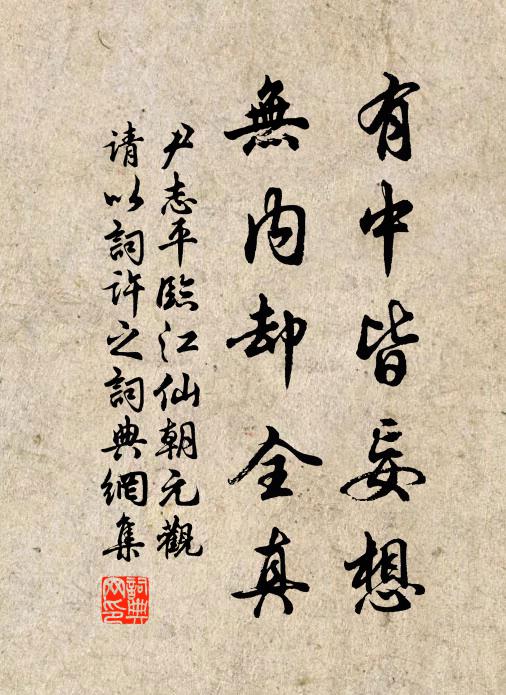 有中皆妄想
無内却全真
尹志平臨江仙朝元觀
请以詞許之詞典網集
詞典網印